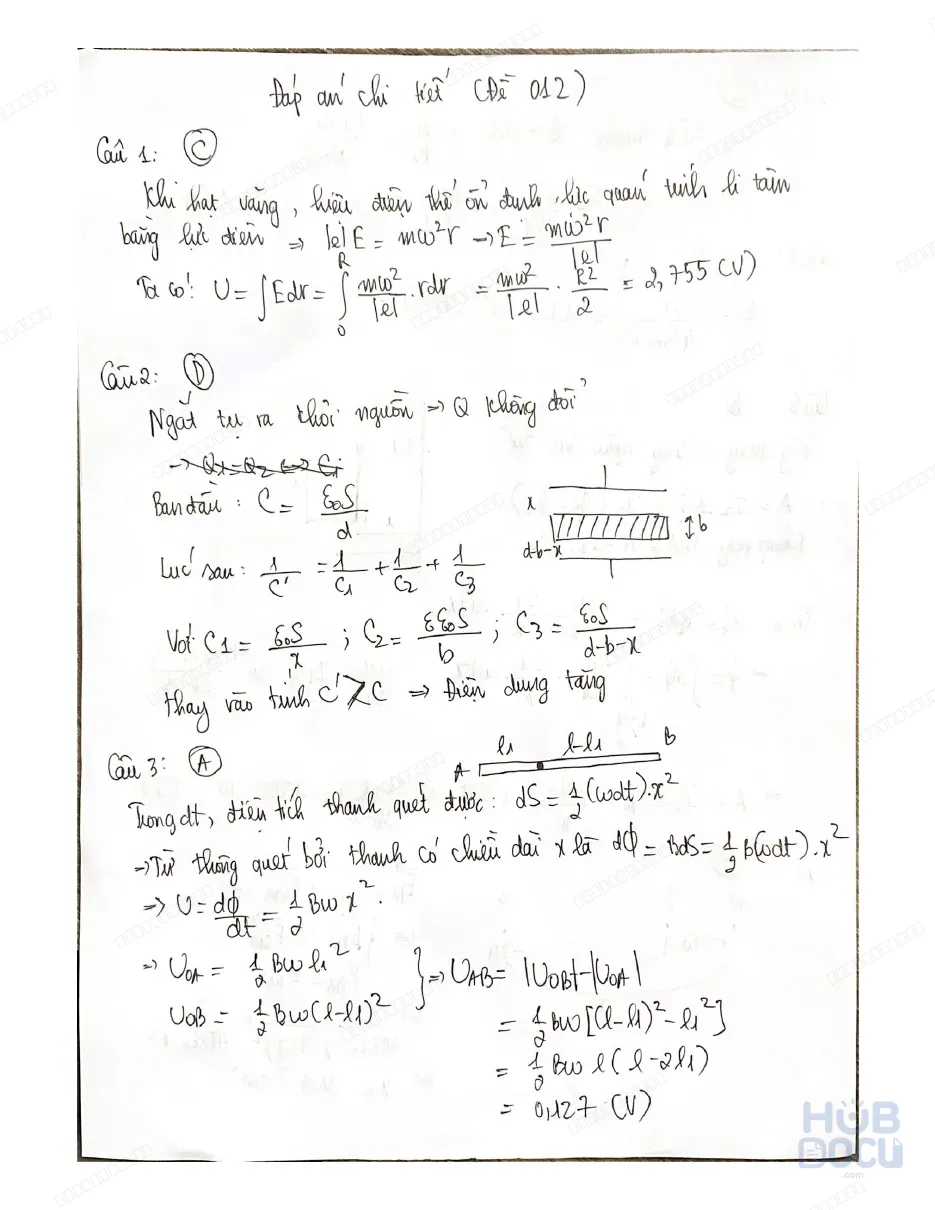 Đáp án chi tiết (Đề 012)
Câu 1: C
Khi hạt vàng, hiệu điện thế ổn định, lực quán tính li tâm
bằng lực điện ⇒ |e|E = mω²r → E = mω²r / |e|
Ta có: U = ∫Edr = ∫₀ᴿ mω²/|e| . rdr = mω²/|e| . R²/2 = 2,755 (V)
Câu 2: D
Ngắt tụ ra khỏi nguồn ⇒ Q không đổi
Ban đầu : C = ε₀S/d
x
b
d-b-x
Lúc sau : 1/C' = 1/C₁ + 1/C₂ + 1/C₃
Với C1 = ε₀S/x ; C₂ = εε₀S/b ; C₃ = ε₀S/d-b-x
thay vào tính C' > C ⇒ Điện dung tăng
Câu 3: A
l₁ l-l₁ B
A
Trong dt, diện tích thanh quét được : dS = 1/2 (ωdt).x²
→ Từ thông quét bởi thanh có chiều dài x là dΦ = BdS = 1/2 B(ωdt).x²
⇒ U = dΦ/dt = 1/2 Bω x².
⇒ UOA = 1/2 Bω l₁²
UOB = 1/2 Bω(l-l1)²
⇒ UAB = |UOB|-|UOA|
= 1/2 Bω[(l-l1)²-l₁²]
= 1/2 Bω l(l-2l1)
= 0,127 (V)
HUB
DOCU
.com